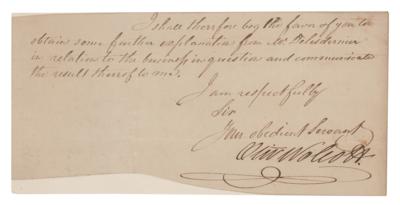 I shall therefore beg the favor of you to
obtain some further explanation from Mr. Delesdernier
in relation to the business in question and communicate
the result thereof to me.
I am respectfully
Sir
Your obedient Servant
Oliv Wolcott.